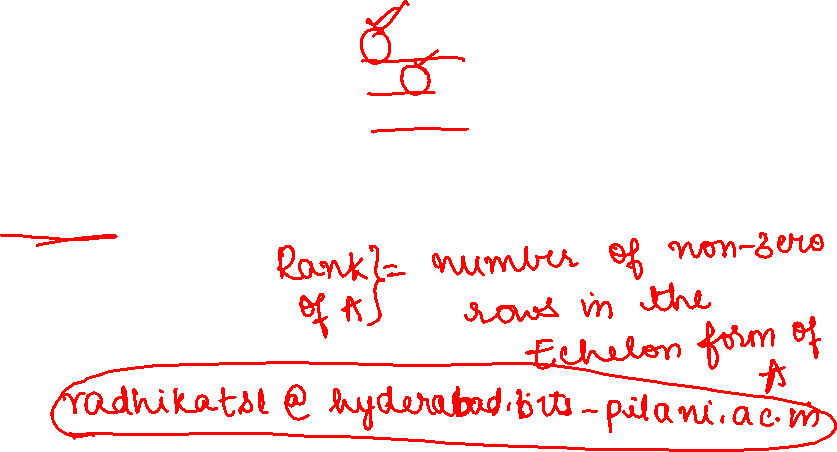 Rank } = number of non-zero
of A } rows in the
Echelon form of
A
radhikatsl@hyderabad.bits-pilani.ac.in